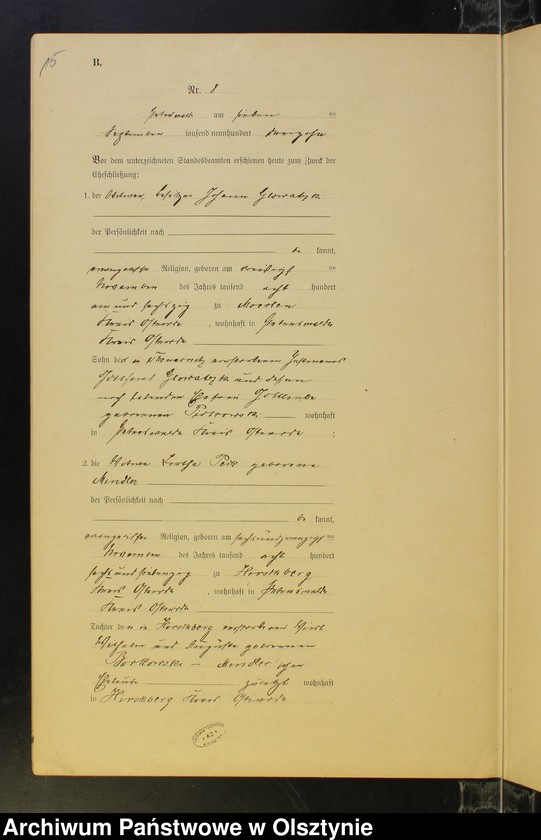 15
B.
Nr. 8
am sieben ten
September tausend neunhundert dreizehn
Vor dem unterzeichneten Standesbeamten erschienen heute zum Zweck der
Eheschließung:
1. der Witwer, Besitzer Johann Glowatzki
der Persönlichkeit nach
be kannt,
evangelischer Religion, geboren am ten
November des Jahres tausend acht hundert
ein und sechszig zu Moerlen
Kreis Osterode, wohnhaft in Peterswalde
Kreis Osterode
Sohn des in verstorbenen
Glowatzki und dessen
noch lebenden Ehefrau Gottliebe
geborenen wohnhaft
in Peterswalde Kreis Osterode;
2. die Witwe geborene
Mendler
der Persönlichkeit nach
be kannt,
evangelischer Religion, geboren am sechsundzwanzigsten
November des Jahres tausend acht hundert
sechs und siebenzig zu Hirschberg
Kreis Osterode, wohnhaft in Peterswalde
Kreis Osterode
Tochter der in Hirschberg verstorbenen Wirt
Wilhelm und Auguste geborenen
Borkowski - Mendler'schen
Eheleute zuletzt wohnhaft
in Hirschberg Kreis Osterode
42
Archiwum Państwowe w Olsztynie